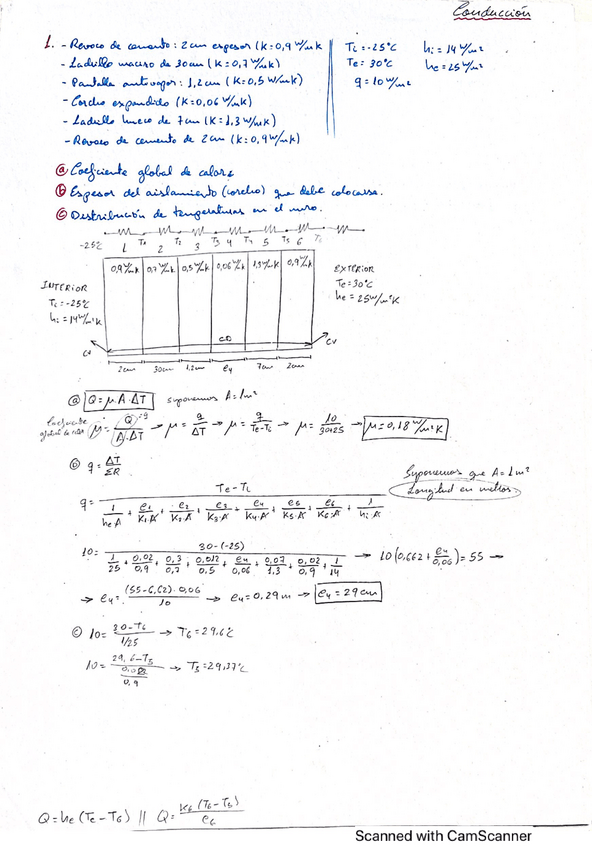 Conducción
1. - Revoco de cemento: 2cm espesor (k=0,9 W/mk
- Ladrillo macizo de 30cm (k=0,7 W/mk)
- Pantalla antivapor: 1,2cm (k=0,5 W/mk)
- Corcho expandido (k=0,06 W/mk)
- Ladrillo hueco de 7cm (k=1,3 W/mk)
- Revoco de cemento de 2cm (k=0,9 W/mk)
Ti=-25°C hi=14 W/m²
Te=30°C he=25 W/m²
q=10 W/m²
ⓐ Coeficiente global de calor
ⓑ Espesor del aislamiento (corcho) que debe colocarse.
ⓒ Distribución de temperaturas en el muro.
-25°C 1 2 T2 3 T3 4 T4 5 T5 6
0,9 W/mk 0,7 W/mk 0,5 W/mk 0,06 W/mk 1,3 W/mk 0,9 W/k
INTERIOR
Ti=-25°C
hi=14 W/m²k
EXTERIOR
Te=30°C
he=25 W/m²k
CV CD CV
2cm 30cm 1,2cm e4 7cm 2cm
ⓐ Q=μ·A·ΔT suponemos A=1m²
Coeficiente global de calor μ = Q/A·ΔT → μ = q/ΔT → μ = q/Te-Ti → μ = 10/30+25 → μ=0,18 W/m²K
ⓑ q = ΔT/ΣR
Suponemos que A=1m²
Longitud en metros.
q = Te-Ti / 1/he·A + e1/K1·A + e2/K2·A + e3/K3·A + e4/K4·A + e5/K5·A + e6/K6·A + 1/hi·A
10 = 30-(-25) / 1/25 + 0,02/0,9 + 0,3/0,7 + 0,012/0,5 + e4/0,06 + 0,07/1,3 + 0,02/0,9 + 1/14 → 10(0,662 + e4/0,06) = 55 →
→ e4 = (55-6,62)·0,06/10 → e4=0,29m → e4=29cm
ⓒ 10 = 30-T6 / 1/25 → T6=29,6°C
10 = 29,6-T5 / 0,02/0,9 → T5=29,37°C
Q=he(Te-T6) || Q= K6(T6-T5)/e6
Scanned with CamScanner